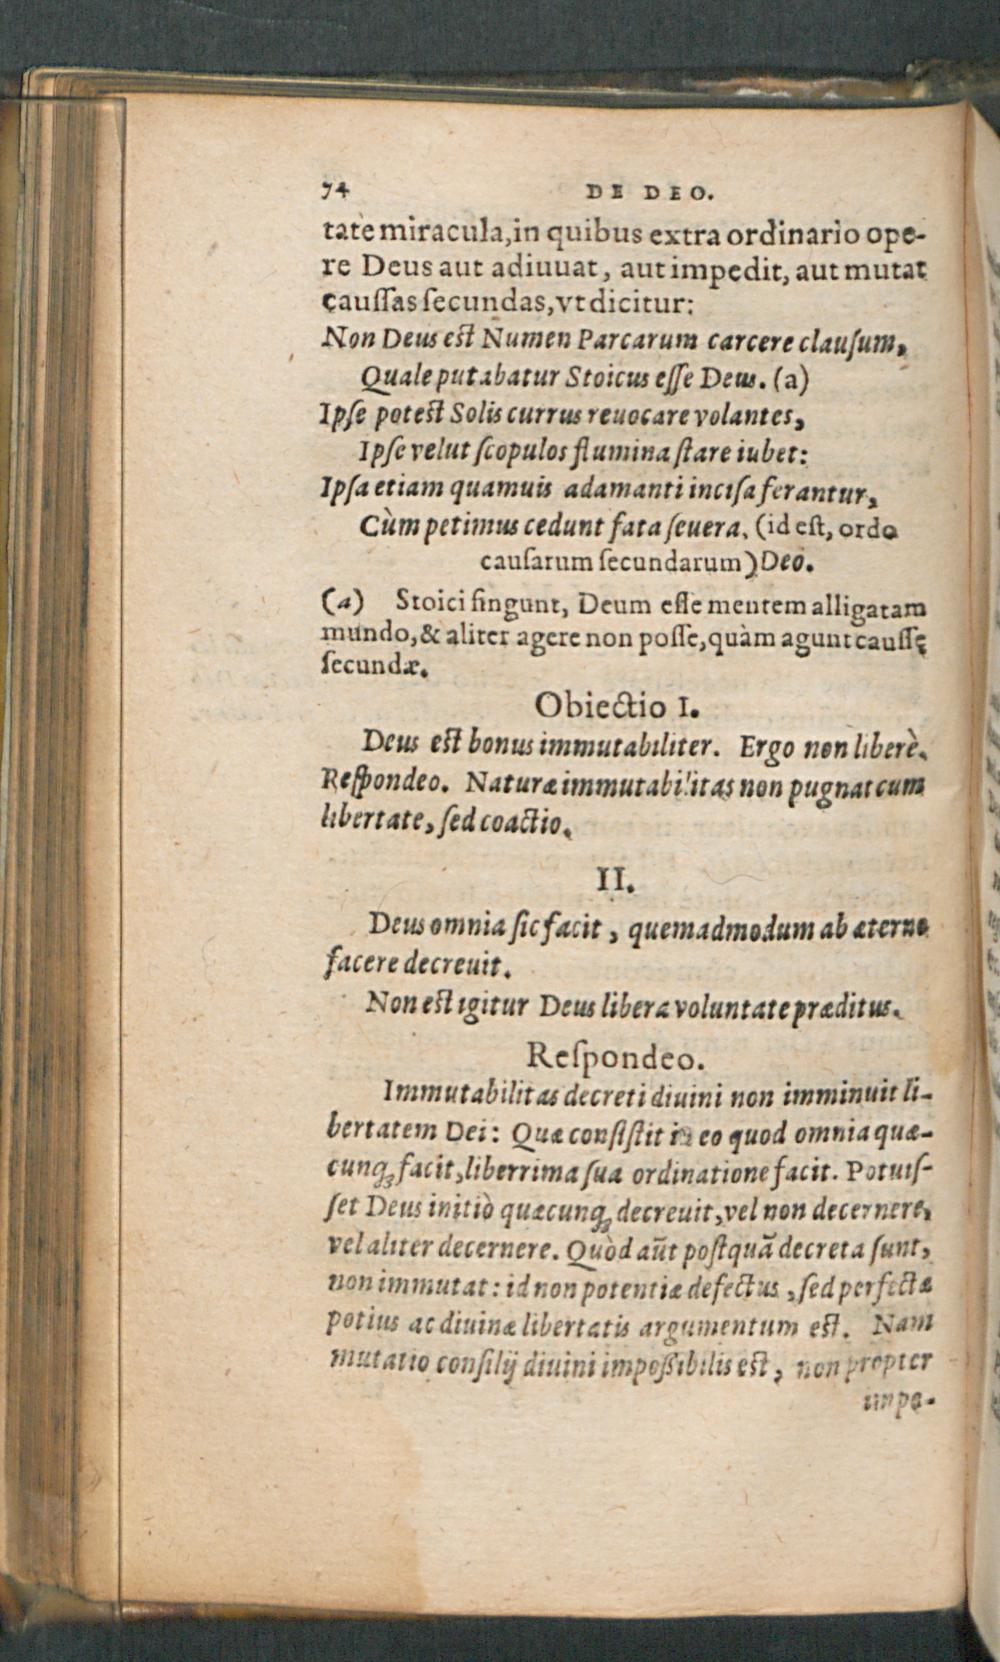 74 DE DEO.
tate miracula, in quibus extra ordinario ope-
re Deus aut adiuuat, aut impedit, aut mutat
cauſſas ſecundas, vt dicitur:
Non Deus est Numen Parcarum carcere clauſum,
Quale putabatur Stoicus eſſe Deus. (a)
Ipſe potest Solis currus reuocare volantes,
Ipſe velut ſcopulos flumina ſtare iubet:
Ipſa etiam quamuis adamanti inciſa ferantur,
Cùm petimus cedunt fata ſeuera, (id eſt, ordo
cauſarum ſecundarum) Deo.
(a) Stoici fingunt, Deum eſſe mentem alligatam
mundo, & aliter agere non poſſe, quàm agunt cauſſę
ſecundæ.
Obiectio I.
Deus est bonus immutabiliter. Ergo non liberè.
Reſpondeo. Naturæ immutabilitas non pugnat cum
libertate, ſed coactio.
II.
Deus omnia ſic facit, quemadmodum ab æterno
facere decreuit.
Non est igitur Deus libera voluntate præditus.
Reſpondeo.
Immutabilitas decreti diuini non imminuit li-
bertatem Dei: Quæ conſiſtit in eo quod omnia quæ-
cunq; facit, liberrima ſua ordinatione facit. Potuiſ-
ſet Deus initiò quæcunq; decreuit, vel non decernere,
vel aliter decernere. Quòd aũt poſtquã decreta ſunt,
non immutat: id non potentiæ defectus, ſed perfectæ
potius ac diuinæ libertatis argumentum est. Nam
mutatio conſilij diuini impoßibilis est, non propter
impo-